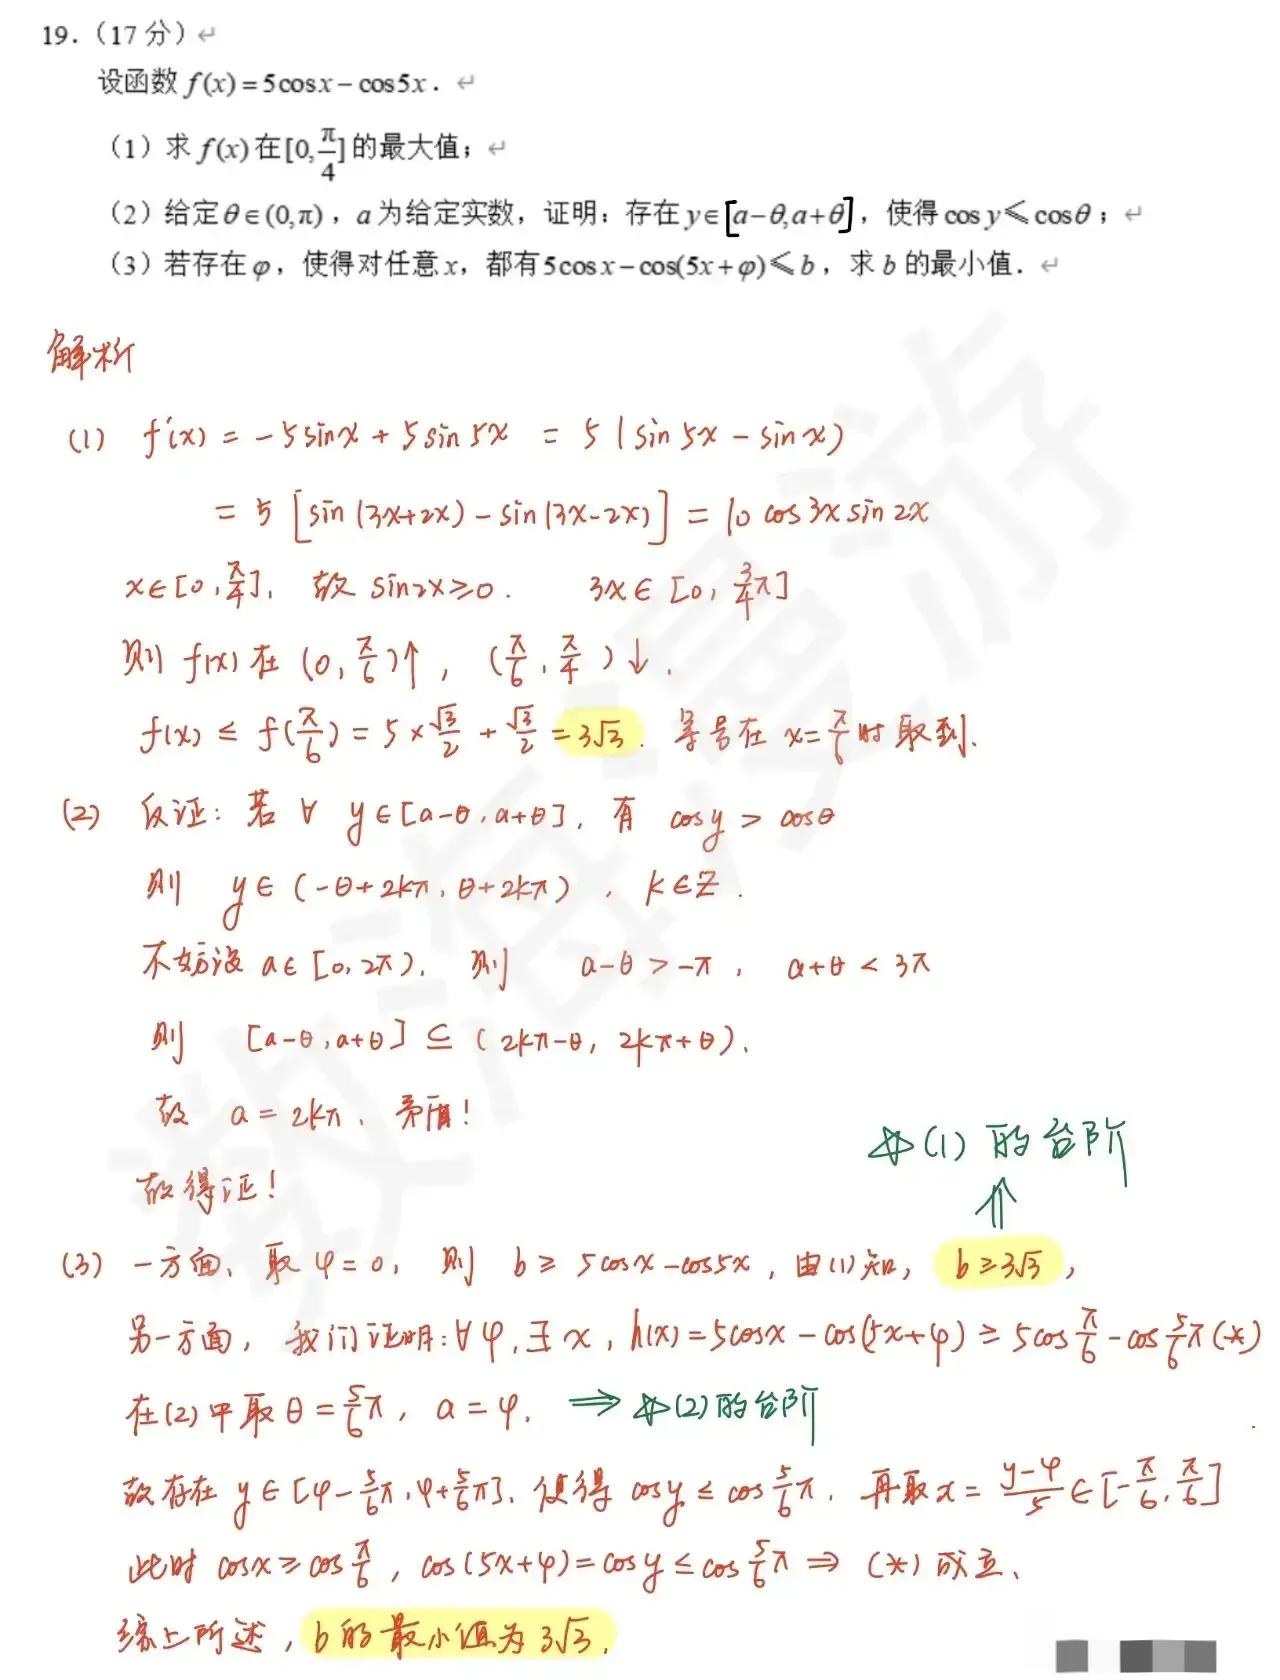 19.（17 分）↵
设函数 f(x) = 5cosx − cos5x． ↵
（1）求 f(x) 在[0, π/4] 的最大值；↵
（2）给定 θ∈(0,π)，a 为给定实数，证明：存在 y∈[a−θ,a+θ]，使得 cos y ⩽ cosθ；↵
（3）若存在 φ，使得对任意 x，都有 5cosx − cos(5x+φ) ⩽ b，求 b 的最小值．↵
解析
(1) f'(x) = −5sinx + 5sin5x = 5(sin5x − sinx)
= 5[sin(3x+2x) − sin(3x−2x)] = 10cos3x sin2x
x∈[0, π/4]，故 sin2x ≥ 0． 3x∈[0, 3/4π]
则 f(x) 在 (0, π/6)↑，(π/6, π/4)↓．
f(x) ≤ f(π/6) = 5×√3/2 + √3/2 = 3√3．等号在 x=π/6 时取到．
(2) 反证：若 ∀ y∈[a−θ, a+θ]，有 cosy > cosθ
则 y∈(−θ+2kπ, θ+2kπ)，k∈Z．
不妨设 a∈[0, 2π)，则 a−θ > −π，a+θ < 3π
则 [a−θ, a+θ] ⊆ (2kπ−θ, 2kπ+θ)．
故 a = 2kπ．矛盾！
故得证！
(1) 的台阶
⇑
(3) 一方面，取 φ=0，则 b ≥ 5cosx − cos5x，由(1)知，b ≥ 3√3，
另一方面，我们证明：∀φ，∃x，h(x) = 5cosx − cos(5x+φ) ≥ 5cos π/6 − cos 5/6π (*)
在(2)中取 θ = 5/6π，a = φ． ⇒ (2)的台阶
故存在 y∈[φ−5/6π, φ+5/6π]，使得 cosy ≤ cos 5/6π．再取 x = (y−φ)/5 ∈ [−π/6, π/6]
此时 cosx ≥ cos π/6，cos(5x+φ) = cosy ≤ cos 5/6π ⇒ (*) 成立．
综上所述，b 的最小值为 3√3．
数海漫游